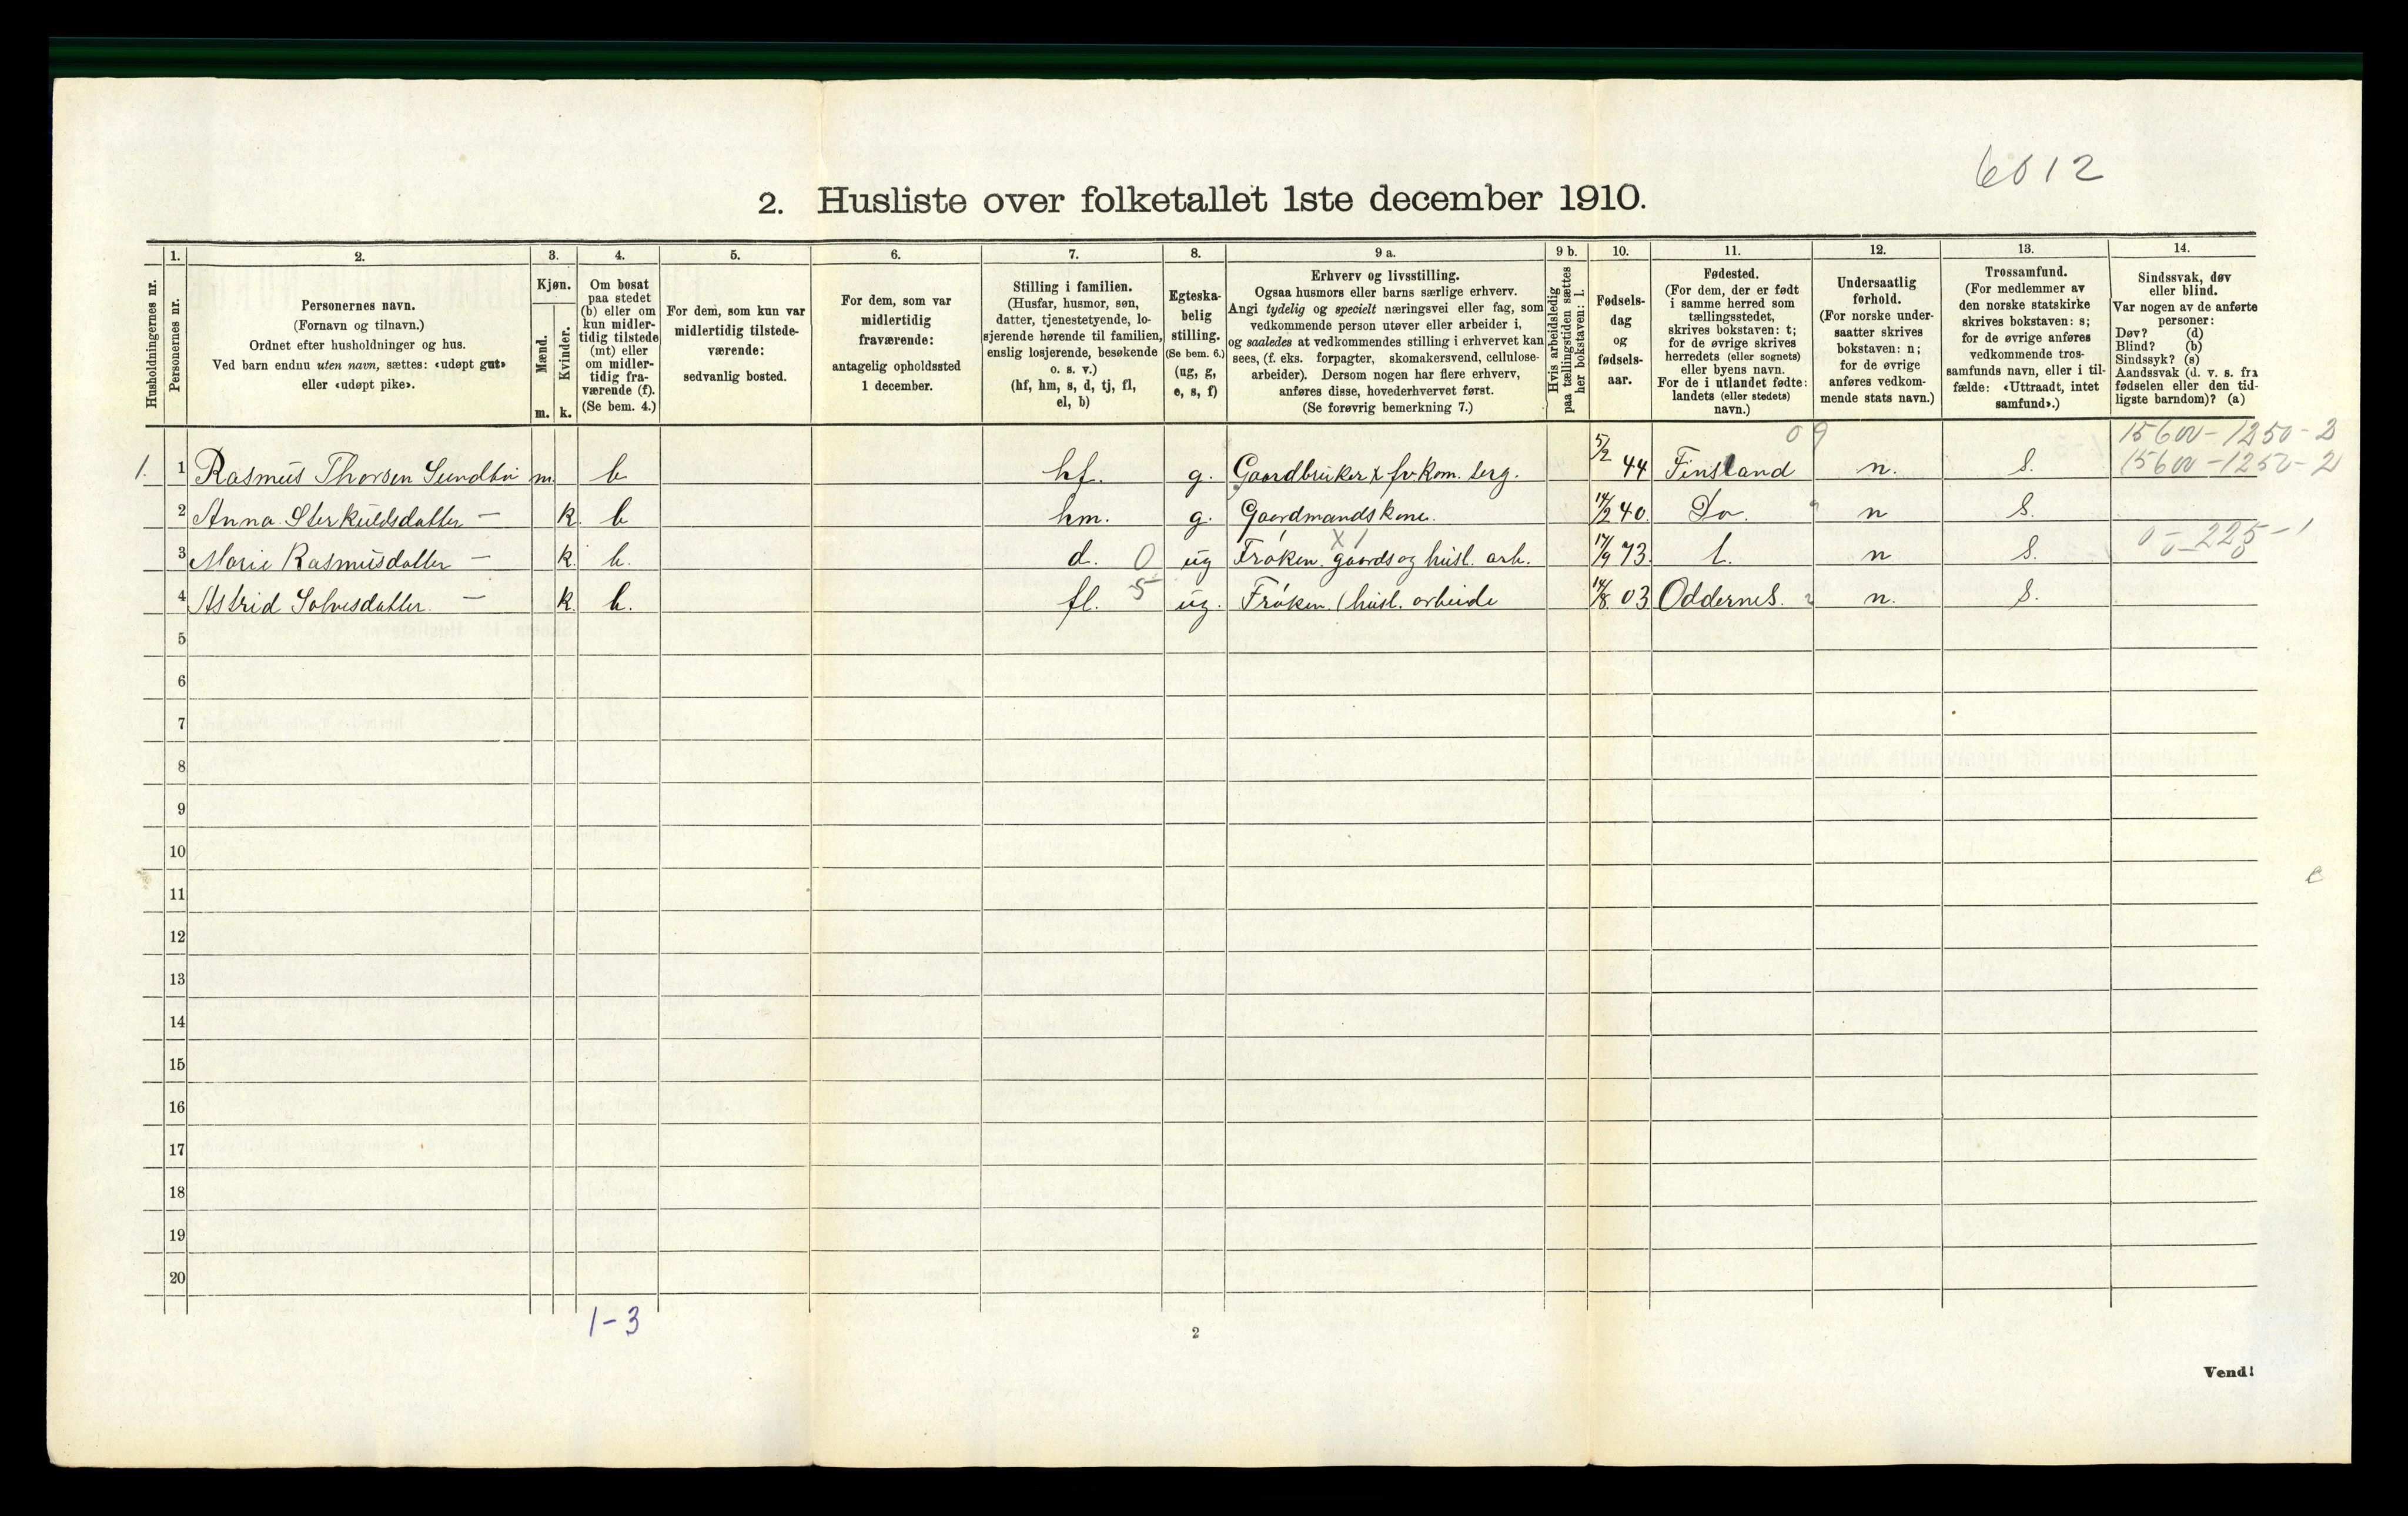 6012
2. Husliste over folketallet 1ste december 1910.
Husholdningernes nr.
1.
Personernes nr.
2.
Personernes navn.
(Fornavn og tilnavn.)
Ordnet efter husholdninger og hus.
Ved barn endnu uten navn, sættes: «udøpt gut»
eller «udøpt pike».
3.
Kjøn.
Mænd.
Kvinder.
m. k.
4.
Om bosat
paa stedet
(b) eller om
kun midler-
tidig tilstede
(mt) eller
om midler-
tidig fra-
værende (f).
(Se bem. 4.)
5.
For dem, som kun var
midlertidig tilstede-
værende:
sedvanlig bosted.
6.
For dem, som var
midlertidig
fraværende:
antagelig opholdssted
1 december.
7.
Stilling i familien.
(Husfar, husmor, søn,
datter, tjenestetyende, lo-
sjerende hørende til familien,
enslig losjerende, besøkende
o. s. v.)
(hf, hm, s, d, tj, fl,
el, b)
8.
Egteska-
belig
stilling.
(Se bem. 6.)
(ug, g,
e, s, f)
9 a.
Erhverv og livsstilling.
Ogsaa husmors eller barns særlige erhverv.
Angi tydelig og specielt næringsvei eller fag, som
vedkommende person utøver eller arbeider i,
og saaledes at vedkommendes stilling i erhvervet kan
sees, (f. eks. forpagter, skomakersvend, cellulose-
arbeider). Dersom nogen har flere erhverv,
anføres disse, hovederhvervet først.
(Se forøvrig bemerkning 7.)
9 b.
Hvis arbeidsledig
paa tællingstiden sættes
her bokstaven: l.
10.
Fødsels-
dag
og
fødsels-
aar.
11.
Fødested.
(For dem, der er født
i samme herred som
tællingsstedet,
skrives bokstaven: t;
for de øvrige skrives
herredets (eller sognets)
eller byens navn.
For de i utlandet fødte:
landets (eller stedets)
navn.)
12.
Undersaatlig
forhold.
(For norske under-
saatter skrives
bokstaven: n;
for de øvrige
anføres vedkom-
mende stats navn.)
13.
Trossamfund.
(For medlemmer av
den norske statskirke
skrives bokstaven: s;
for de øvrige anføres
vedkommende tros-
samfunds navn, eller i til-
fælde: «Uttraadt, intet
samfund».)
14.
Sindssvak, døv
eller blind.
Var nogen av de anførte
personer:
Døv? (d)
Blind? (b)
Sindssyk? (s)
Aandssvak (d. v. s. fra
fødselen eller den tid-
ligste barndom)? (a)
09 15600-1250-2
1. 1 Rasmus Thorsen Sundbø m. b. hf. g. Gaardbruker x fv. kom. 5/2 44 Finsland n. S. 15600-1250-2
2 Anna Sterkuldsdatter — k. b hm. g. Gaardmandskone. 14/2 40. Do. n S.
3 Marie Rasmusdatter — k. b. d. 0 ug Frøken. gaards og husl. arb. 17/9 73. t. n S. 0-225-1
4 Astrid Solvesdatter. — k. b. fl. 5 ug. Frøken. husl. arbeide 14/8 03 Oddernes. n. S.
5
6
7
8
9
10
11
12
13
14
15
16
17
18
19
20
1-3
2
Vend!